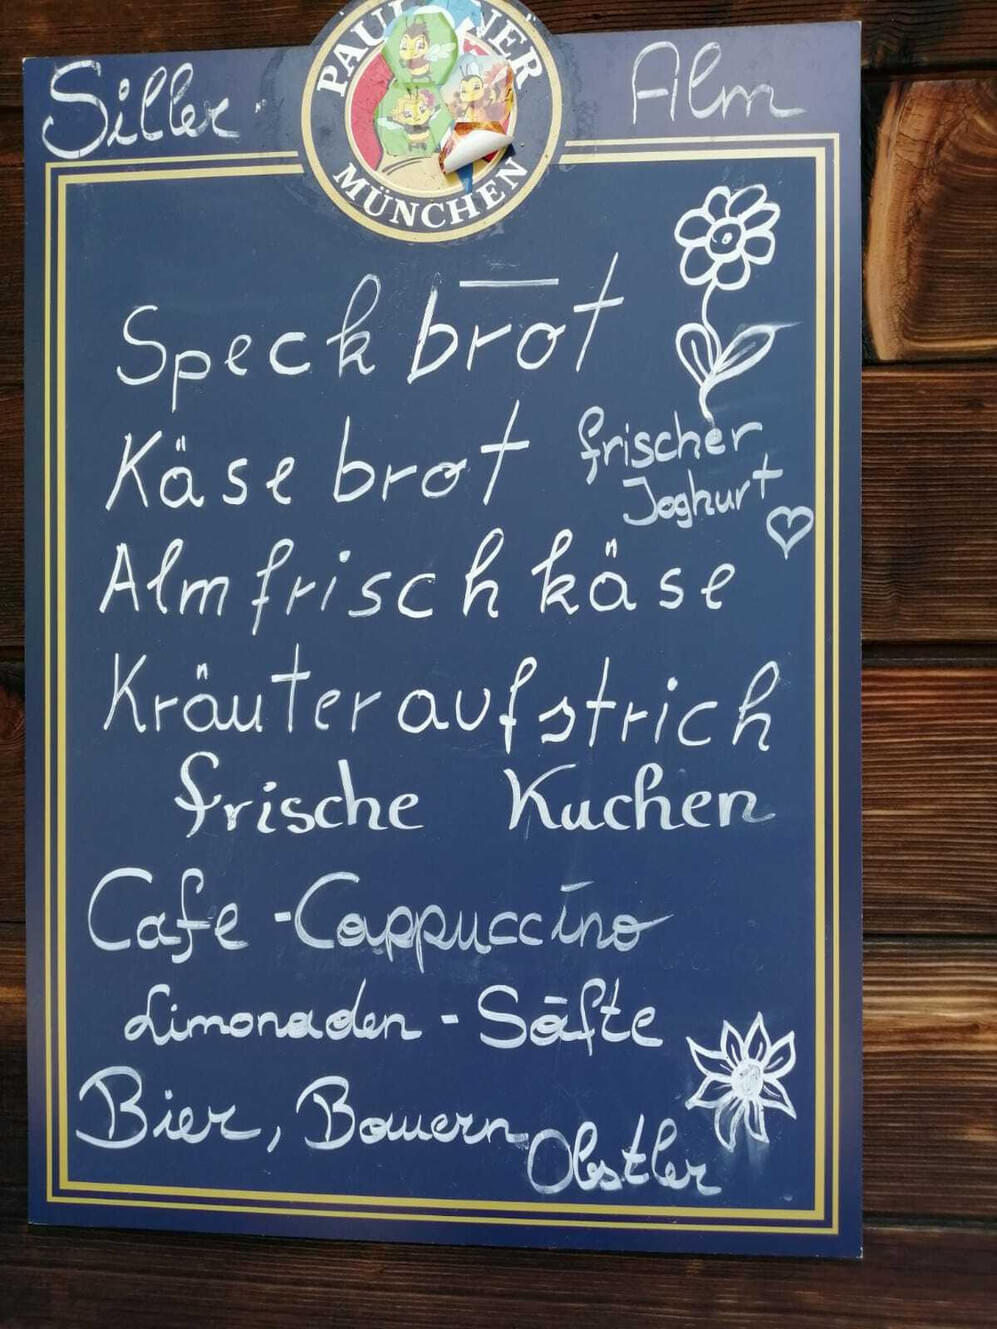 Siller Alm
PAULANER
MÜNCHEN
Speckbrot
Käsebrot
frischer
Joghurt
Almfrischkäse
Kräuteraufstrich
frische Kuchen
Cafe - Cappuccino
Limonaden - Säfte
Bier, Bauern
Obstler